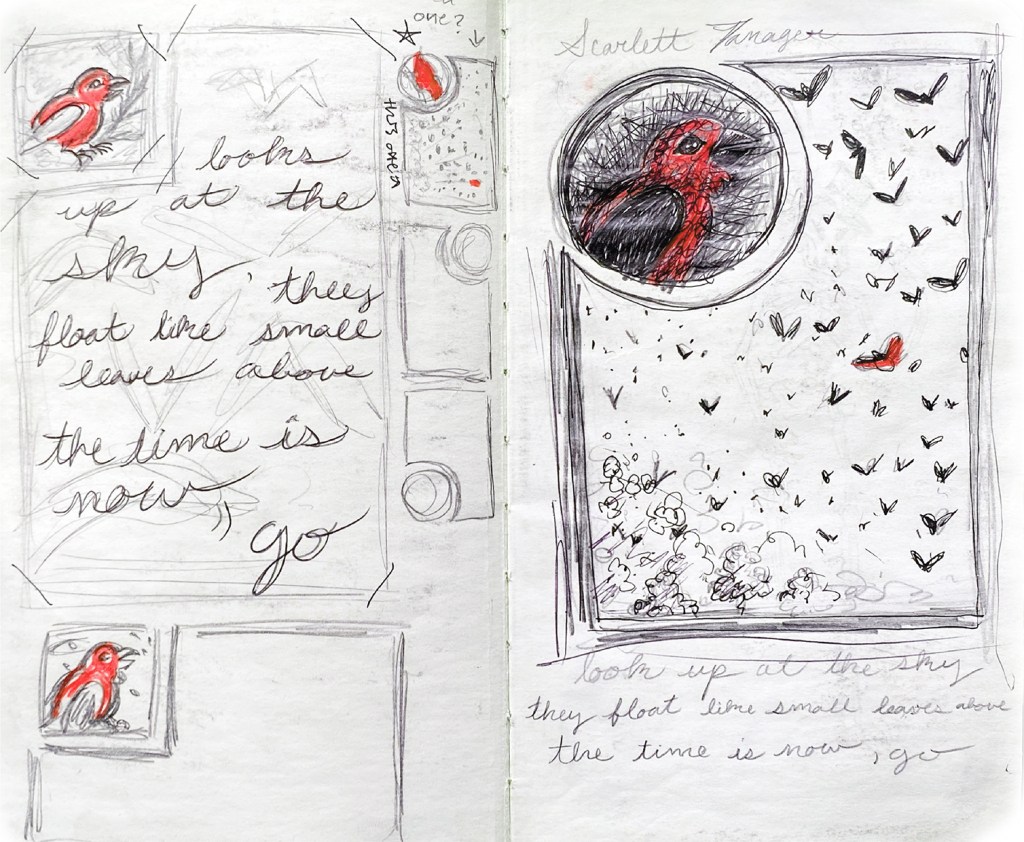 one?
looks
up at the
sky, they
float like small
leaves above
the time is
now, go
Scarlett Tanager
look up at the sky
they float like small leaves above
the time is now, go